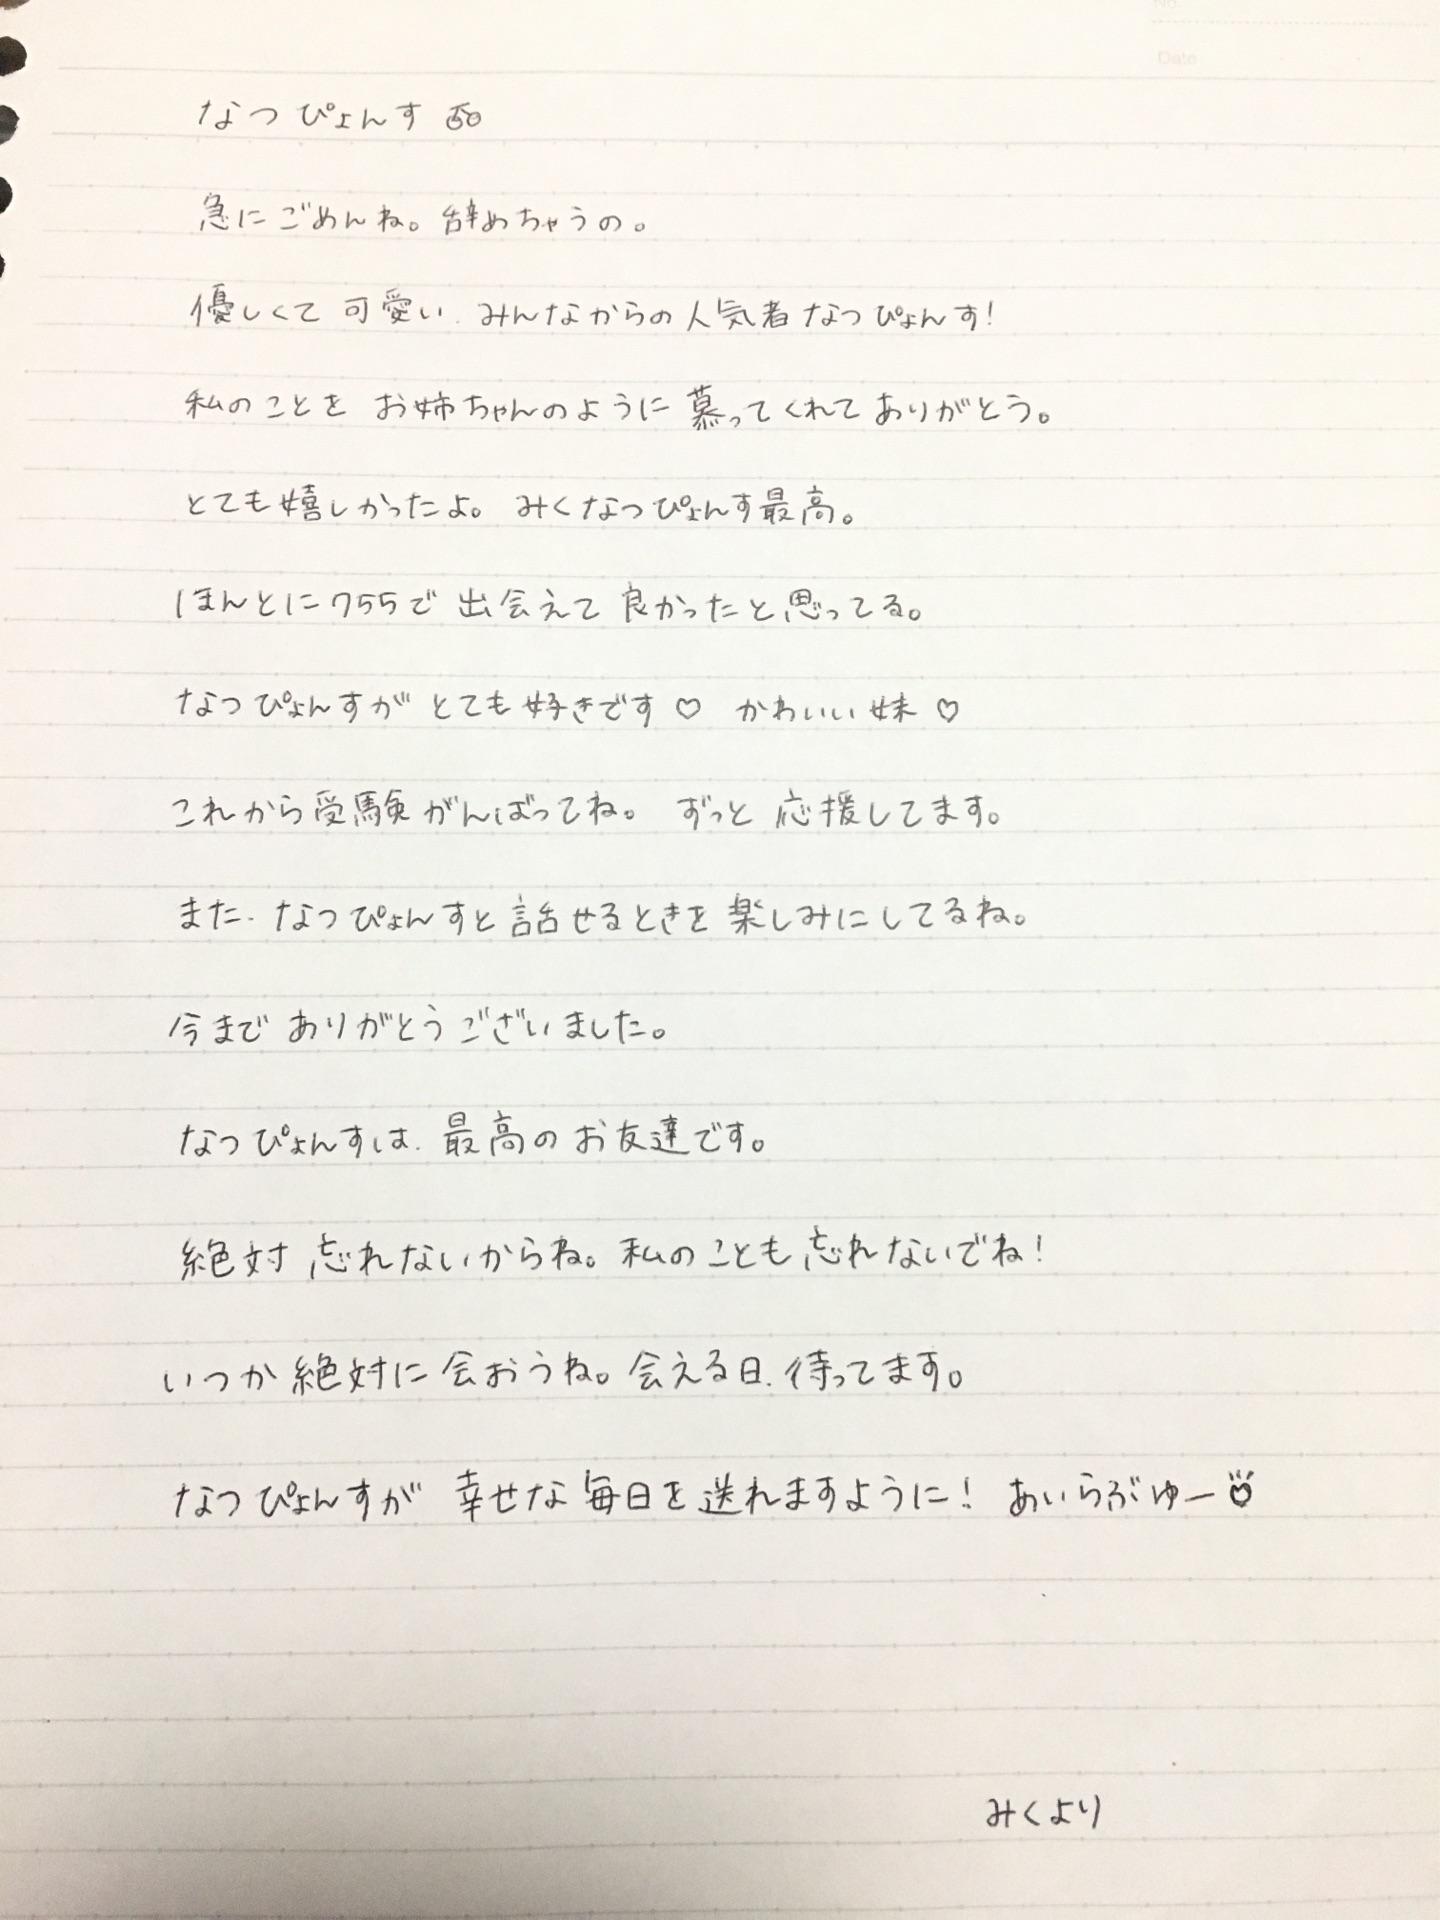 No.
Date
なつぴょんす
急にごめんね。辞めちゃうの。
優しくて可愛い、みんなからの人気者なつぴょんす!
私のことを お姉ちゃんのように慕ってくれてありがとう。
とても嬉しかったよ。 みくなつぴょんす最高。
ほんとに755で出会えて良かったと思ってる。
なつぴょんすがとても好きです♡ かわいい妹♡
これから受験がんばってね。 ずっと応援してます。
また、なつぴょんすと話せるときを楽しみにしてるね。
今までありがとうございました。
なつぴょんすは、最高のお友達です。
絶対忘れないからね。私のことも忘れないでね!
いつか絶対に会おうね。会える日、待ってます。
なつぴょんすが幸せな毎日を送れますように! あいらぶゆー♡
みくより